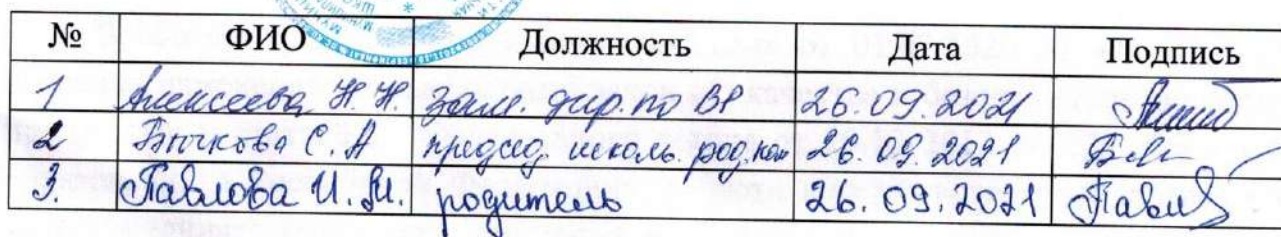 № ФИО Должность Дата Подпись
1 Алексеева Н. Н. зам. дир. по ВР 26.09.2021
2 Бычкова С. А председ. школь. род. ком 26.09.2021
3. Павлова И. М. родитель 26.09.2021